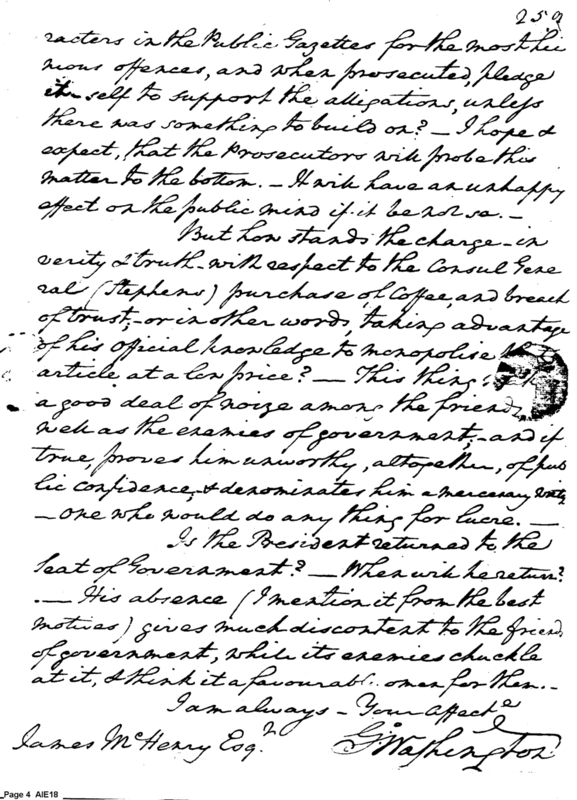 259
racters in the Public Gazettes for the most hei
nous offences, and when prosecuted, pledge
itself to support the alligations, unless
there was something to build on? — I hope &
expect, that the Prosecutors will probe this
matter to the bottom. — It will have an unhappy
effect on the public mind if it be not so. —
But how stands the charge - in
verity & truth - with respect to the Consul Gene
ral (Stephens) purchase of Coffee, and breach
of trust; - or in other words, taking advantage
of his Official knowledge to monopolise
article at a low price? — This thing
a good deal of noize among the friend
well as the enemies of government; - and if
true, proves him unworthy, altogether, of pub
lic confidence, & denominates him a mercenary
— one who would do any thing for lucre. —
Is the President returned to the
Seat of Government? — When will he return?
— His absence (I mention it from the best
motives) gives much discontent to the friends
of government, while its enemies chuckle
at it, & think it a favourable omen for them. —
I am always - Your Affecte
Go: Washington
James McHenry Esqr.
Page 4 AIE18